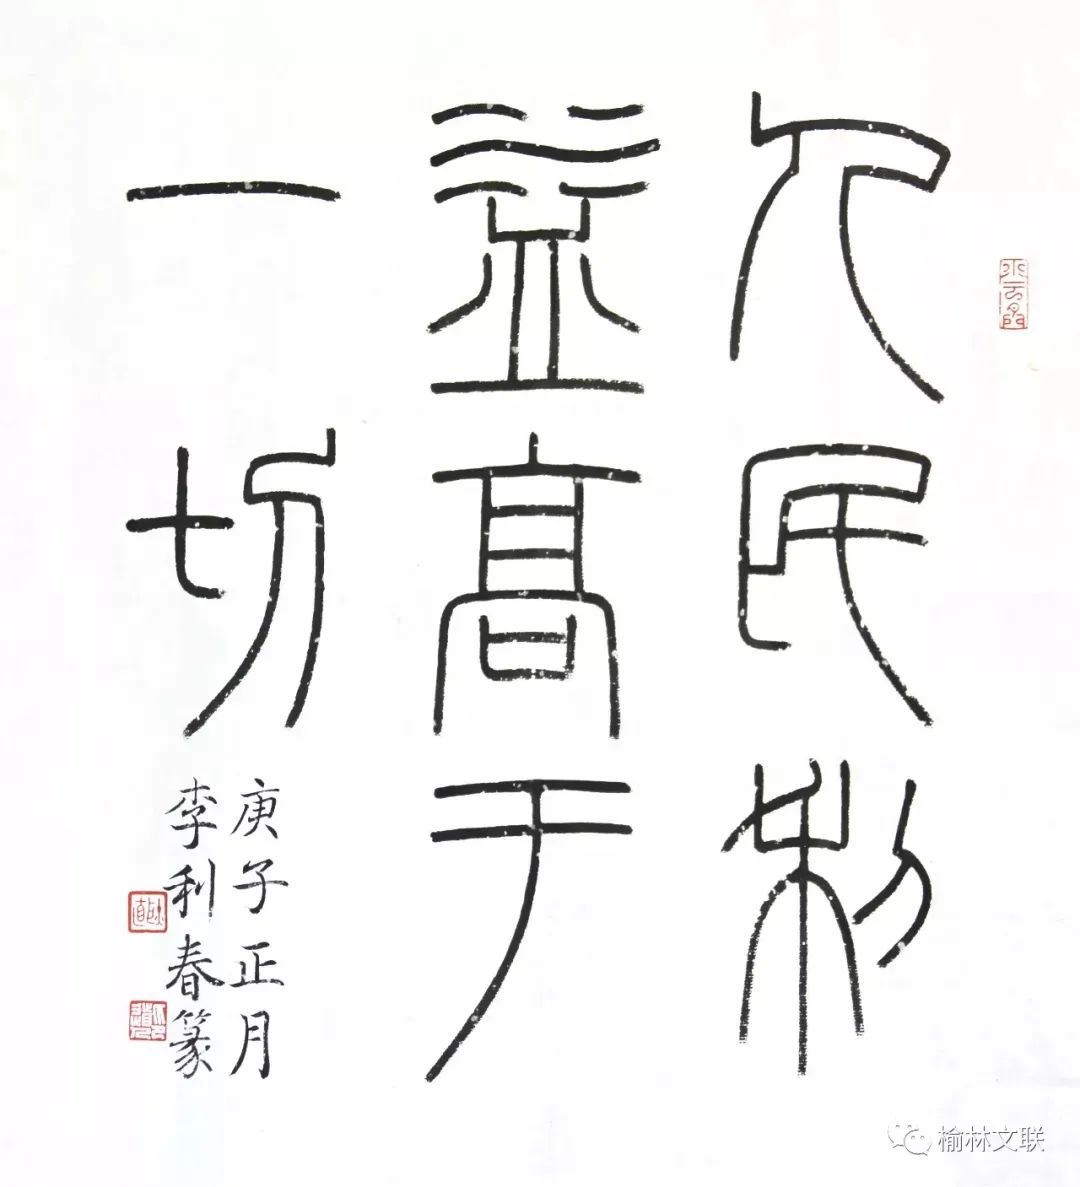 人民利
益高于
一切
庚子正月
李利春篆
榆林文联